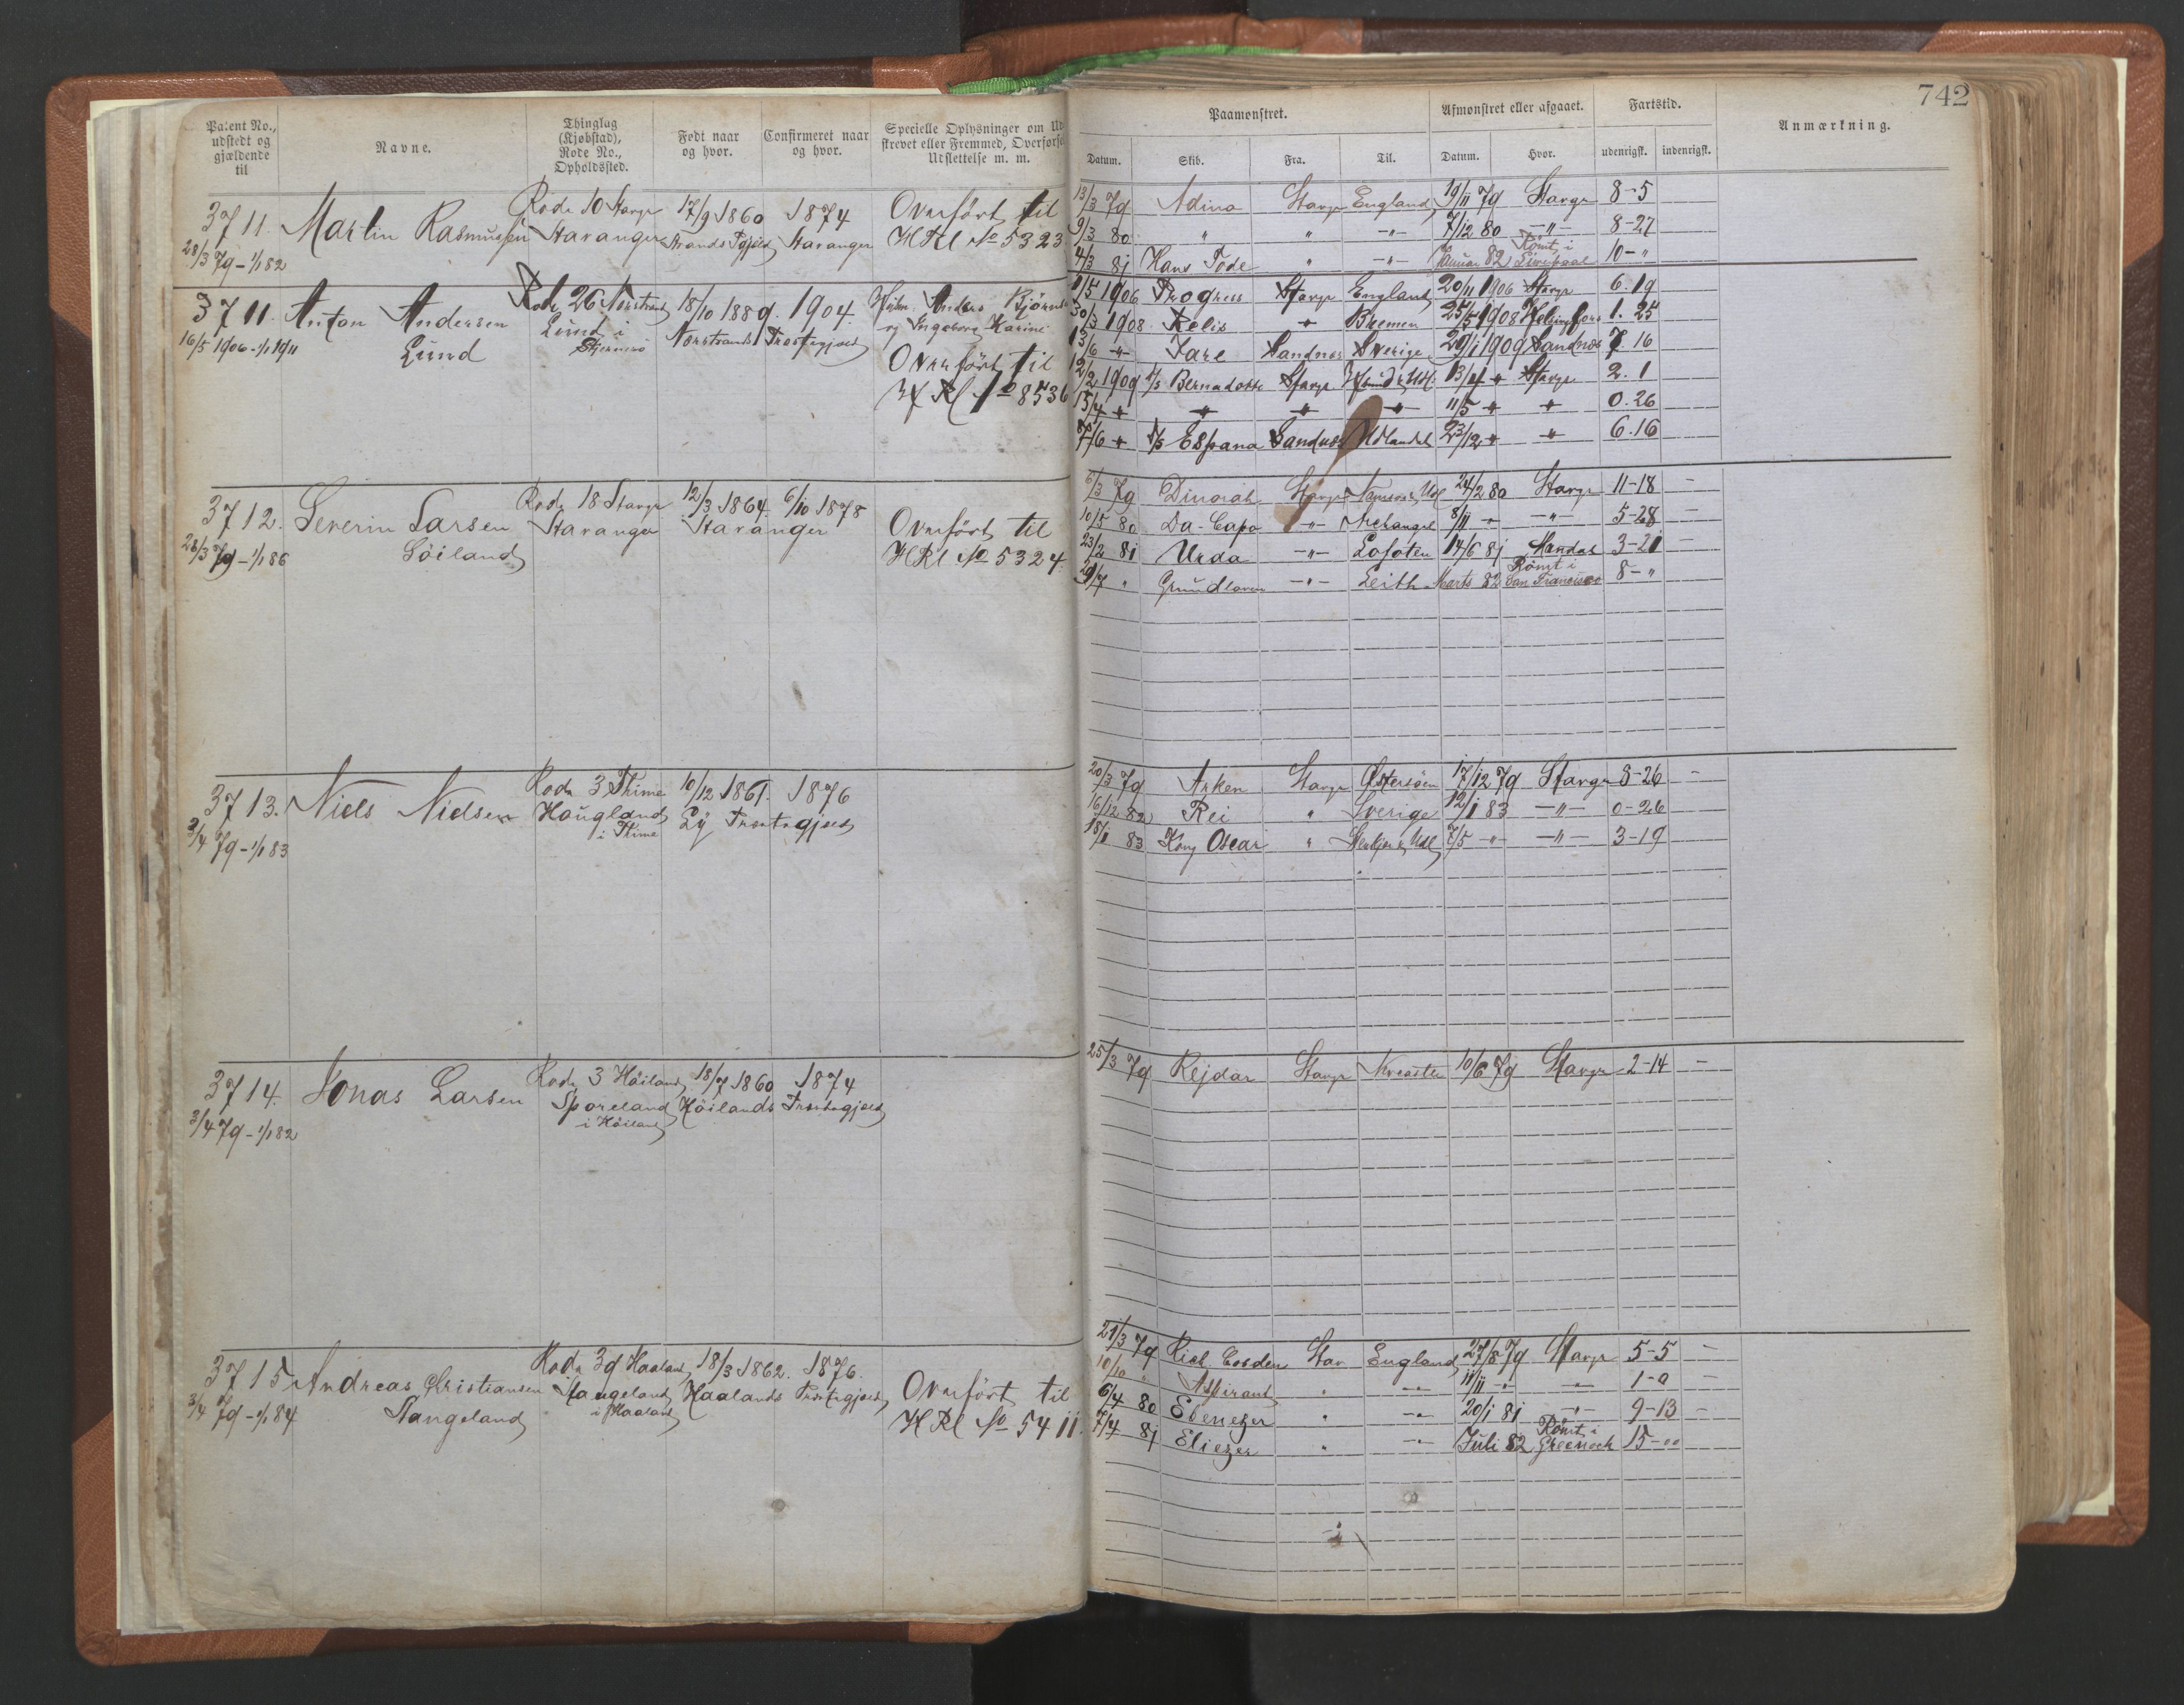 742
Patent No., udstedt og gjældende til
Navne.
Thinglag (Kjøbstad), Rode No., Opholdssted.
Født naar og hvor.
Confirmeret naar og hvor.
Specielle Oplysninger om Ud-
skrevet eller Fremmed, Overførsel
Udslettelse m. m.
Paamønstret.
Afmønstret eller afgaaet.
Fartstid.
Anmærkning.
Datum. Skib. Fra. Til. Datum. Hvor. udenrigsk. indenrigsk.
3711. Martin Rasmussen Rode 10 Stavgr 17/9 1860 1874 Overført til
28/3 79 - 1/1 82 Stavanger Strands Pgjeld Stavanger HRl No 5323
13/3 79 Adino Stavgr England 19/11 79 Stavgr 8-5
9/3 80 " " -"- 7/12 80 -"- 8-27
4/3 81 Hans Tode " -"- Januar 82 Rømt i Liverpool 10-"
3711. Anton Andersen Rode 26 Norstrand 18/10 1889. 1904. Anders Bjørn
16/5 1906 - 1/1 1911 Lund Lund i Norstrands Prestegjeld og Ingeborg Karine
Overført til
HRl No 8536
1/5 1906 Progress Stavgr England 20/11 1906 Stavgr 6.19
30/3 1908 Relis " Bremen 25/5 1908 Helsingfors 1.25
13/6 " Fare Sandnes Sverige 29/1 1909 Sandnes 7.16
12/2 1909 S/s Bernadotte Stavgr 13/4 " Stavgr 2.1
15/4 " " " " 11/5 " " 0.26
7/6 " S/s Espana Sandnes Udlandet 23/12 " " 6.16
3712. Severin Larsen Rode 18 Stavgr 12/3 1864. 6/10 1878 Overført til
28/3 79 - 1/1 86 Løiland Stavanger Stavanger HRl No 5324.
6/3 79 Dinorah Stavgr Namsos & Udl 24/2 80 Stavgr 11-18 -
10/5 80 Da-Capo -"- Archangel 8/11 " -"- 5-28 -
23/2 81 Urda -"- Lofoten 14/6 81 Mandal 3-21 -
29/7 " Grundloven -"- Leith Marts 82 Rømt i San Francisco 8-"
3713. Niels Nielsen Rode 3 Thime 10/12 1861. 1876
3/4 79 - 1/1 83 Haugland i Thime Ly Prestegjeld
20/3 79 Arken Stavgr Østersøen 17/12 79 Stavgr 8-26 -
16/12 82 Rei " Sverige 12/1 83 -"- 0-26
18/1 83 Kong Oscar " & Udl 7/5 -"- -"- 3-19
3714. Jonas Larsen Rode 3 Høiland 18/7 1860 1874
3/4 79 - 1/1 82 Sporeland i Høiland Høilands Prestegjeld
25/3 79 Rejdar Stavgr Nveastle 10/6 79 Stavgr 2-14 -
3715 Andreas Christiansen Rode 39 Haaland 18/3 1862. 1876. Overført til
3/4 79 - 1/1 84 Stangeland Stangeland i Haaland Haalands Prestegjeld HRl No 5411.
21/3 79 Rich Cosden Stav England 27/8 79 Stavgr 5-5 -
10/10 " Aspirant " -"- 11/11 -"- -"- 1-0 -
6/4 80 Ebenezer " -"- 20/1 81 -"- 9-13 -
7/4 81 Eliezer " -"- Juli 82 Rømt i Greenock 15-00